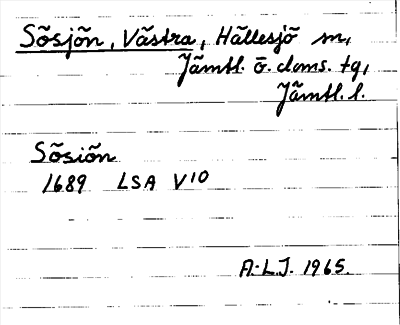 Sösjön, Västra, Hällesjö sn,
Jämtl. ö. doms. tg,
Jämtl. l.
Sösiön
1689 LSA V10
A.L.J. 1965.